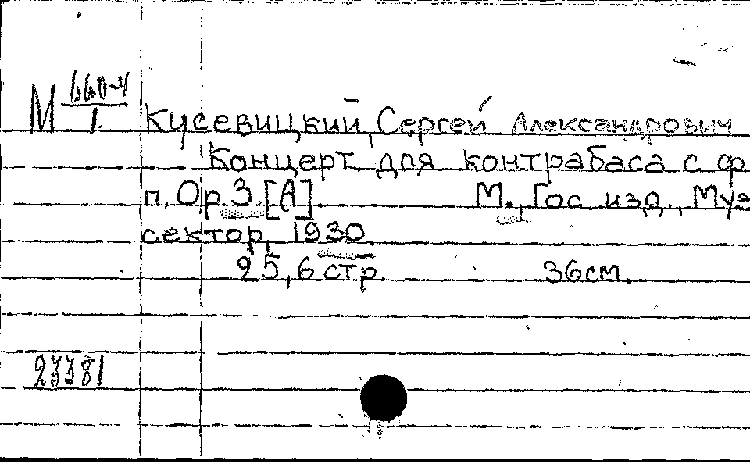 М 660-4
1
Кусевицкий, Сергей Александрович
Концерт для контрабаса с ф
п. Ор. 3. [А] М., Гос. изд., Муз
сектор, 1930
25, 6 стр. 36см.
23381